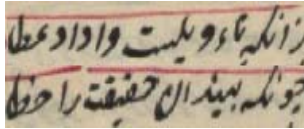 زانکه پاء ویلیت واداد عطا
چونکه بیند آن حقیقت را خطا